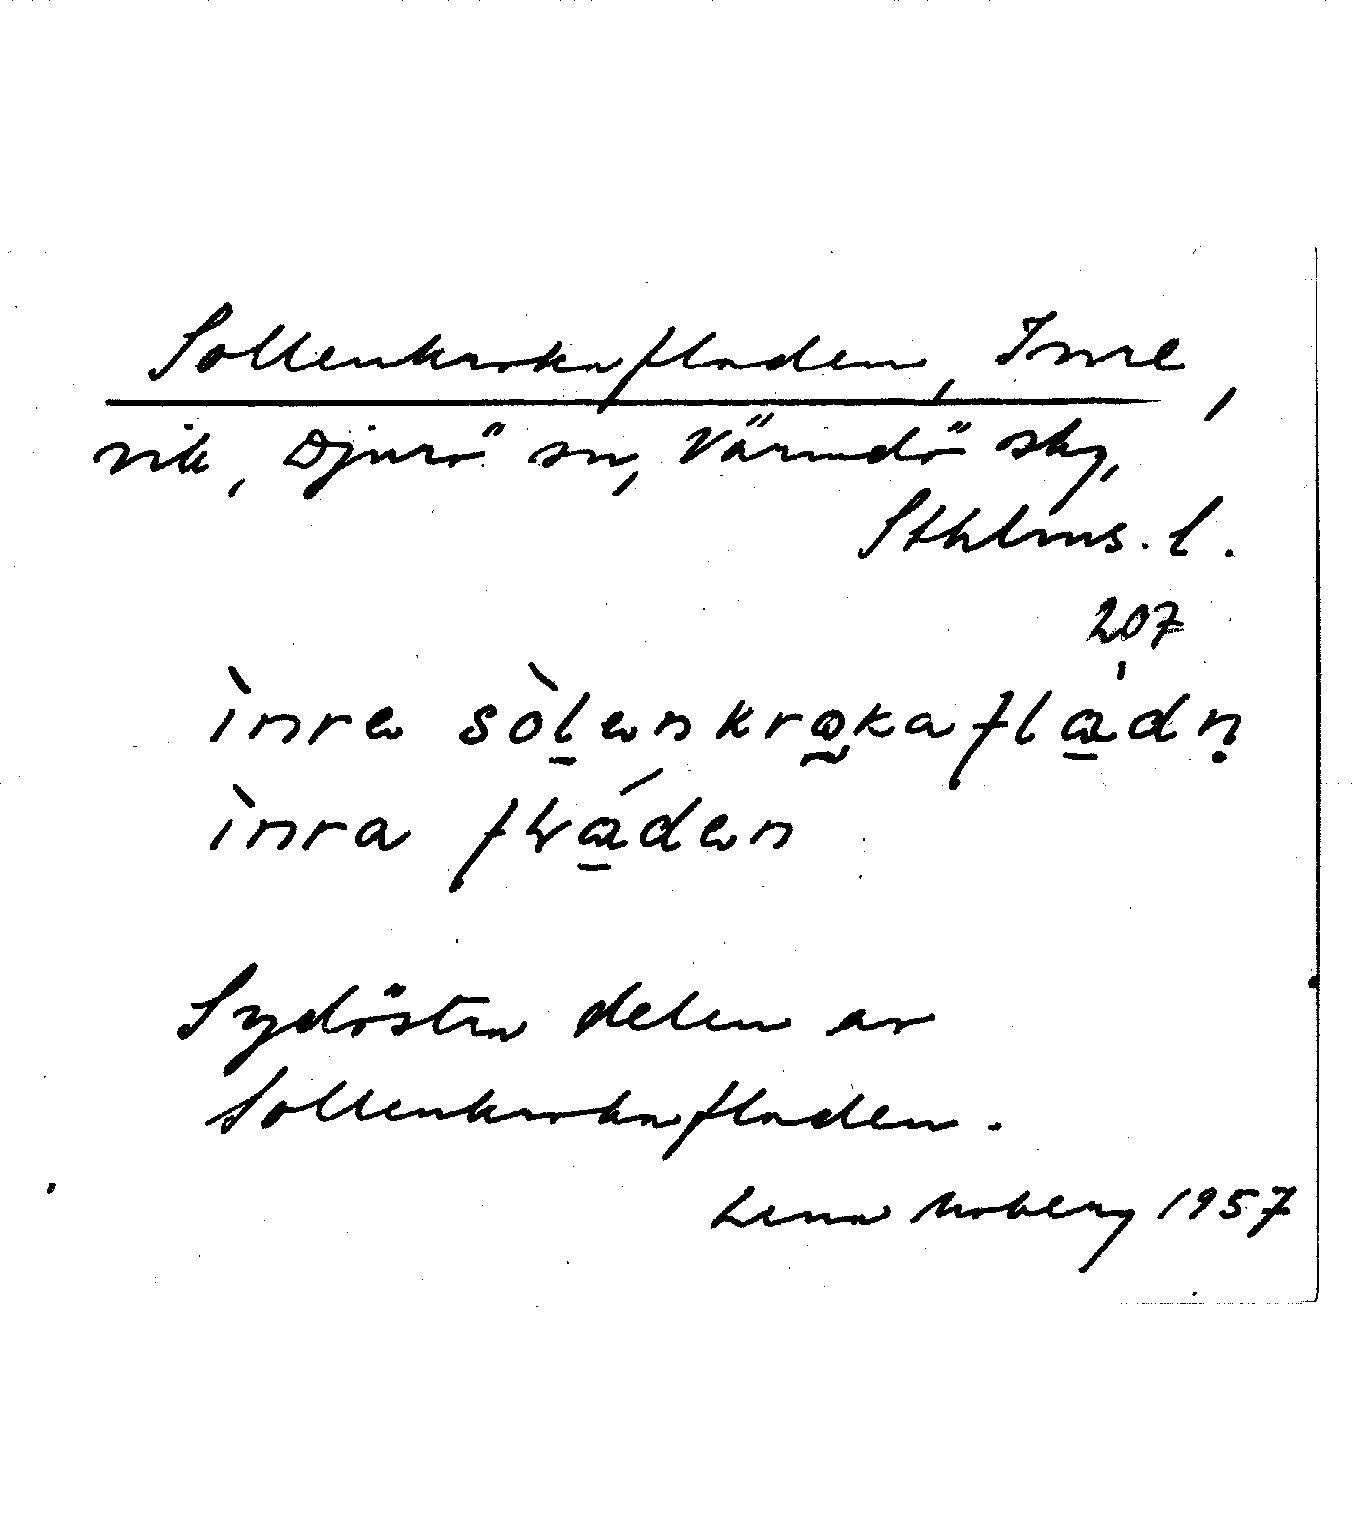 Sollenkrokafladen, Inre,
vik, Djurö sn, Värmdö sky,
Sthlms. l.
207
ìnrе sòlenkrokafladn̥
ìnra fláden
Sydöstra delen av
Sollenkrokafladen.
Lena Moberg 1957